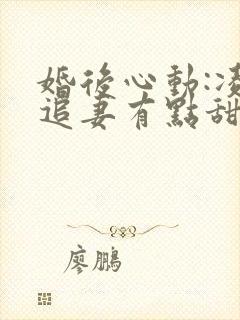 婚後心動:凌
追妻有點甜
廖鵬